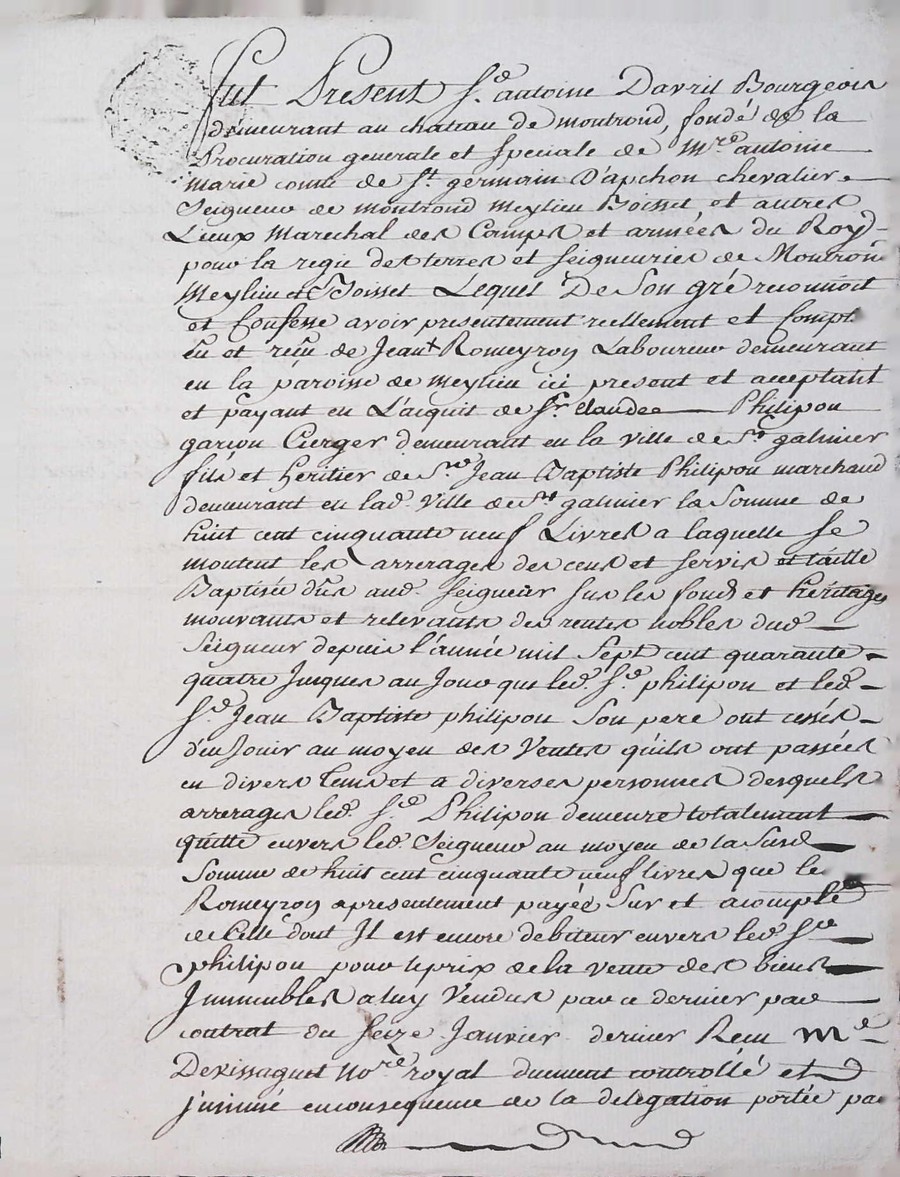 Fut Present Sr. antoine Davril Bourgeois
demeurant au chateau de montrond, fondé de la
Procuration generale et speciale de Mre antoine
marie comte de St. germain D'apchon chevalier
Seigneur de montrond meylieu Boisset et autres
Lieux Marechal des Camps et armées du Roy
pour la regie des terres et seigneuries de Montron
Meylieu et Boisset Lequel De Son gré reconnoit
et Confesse avoir presentement reellement et Compt.
eu et reçu de Jean Romeyron Laboureur demeurant
en la paroisse de meylieu ici present et acceptant
et payant en L'acquit de Sr. claude Philipon
garçon Cierger demeurant en la ville de St galmier
fils et heritier de Sr Jean Baptiste Philipon marchand
demeurant en lad. Ville de St galmier la Somme de
huit cent cinquante neuf Livres a laquelle se
montent les arrerages des cens et servis et taille
Baptisée dûs aud. Seigneur sur les fonds et heritages
mouvants et relevants des rentes nobles dud
Seigneur depuis l'année mil Sept cent quarante
quatre Jusques au Jour que led. Sr. philipon et led
Sr. Jean Baptiste philipon Son pere ont cessés
d'en Jouir au moyen des Ventes qu'ils ont passées
en divers tems et a diverses personnes desquels
arrerages led. Sr. Philipon demeure totalement
quitte envers led. Seigneur au moyen de la Susd
Somme de huit cent cinquante neuf livres que le
Romeyron a presentement payée Sur et acompte
de Celle dont Il est encore debiteur envers led Sr
philipon pour le prix de la vente des biens
Immeubles a luy Vendus par ce dernier par
contrat du Seize Janvier dernier Reçu Me
Devissaguet nore royal duement controllé et
jnsinué en consequence de la délégation portée par